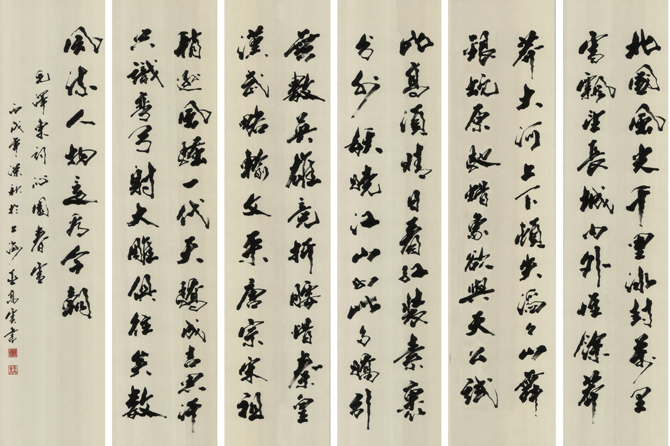 北國風光千里冰封萬里
雪飄望長城内外惟餘莽
莽大河上下頓失滔々山舞
銀蛇原馳蜡象欲與天公試
比高須晴日看紅裝素裹
分外妖嬈江山如此多嬌引
無數英雄竞折腰惜秦皇
漢武略輸文采唐宗宋祖
稍遜風騷一代天驕成吉思汗
只識彎弓射大雕俱往矣數
風流人物還看今朝
毛澤東詞沁園春雪
丙戌年深秋於上海